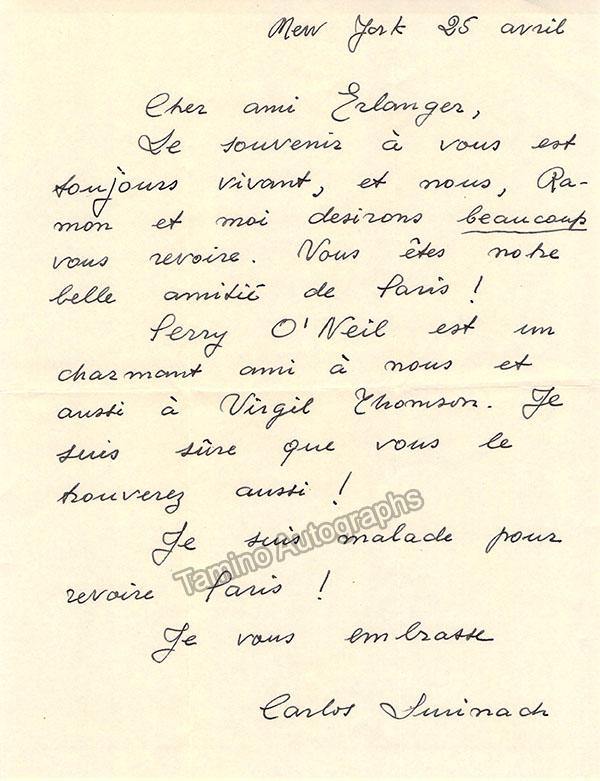 New York 25 avril
Cher ami Erlanger,
Le souvenir à vous est
toujours vivant, et nous, Ra-
mon et moi desirons beaucoup
vous revoire. Vous êtes notre
belle amitié de Paris !
Perry O'Neil est un
charmant ami à nous et
aussi à Virgil Thomson. Je
suis sûre que vous le
trouverez aussi !
Je suis malade pour
revoire Paris !
Je vous embrasse
Carlos Surinach
Tamino Autographs